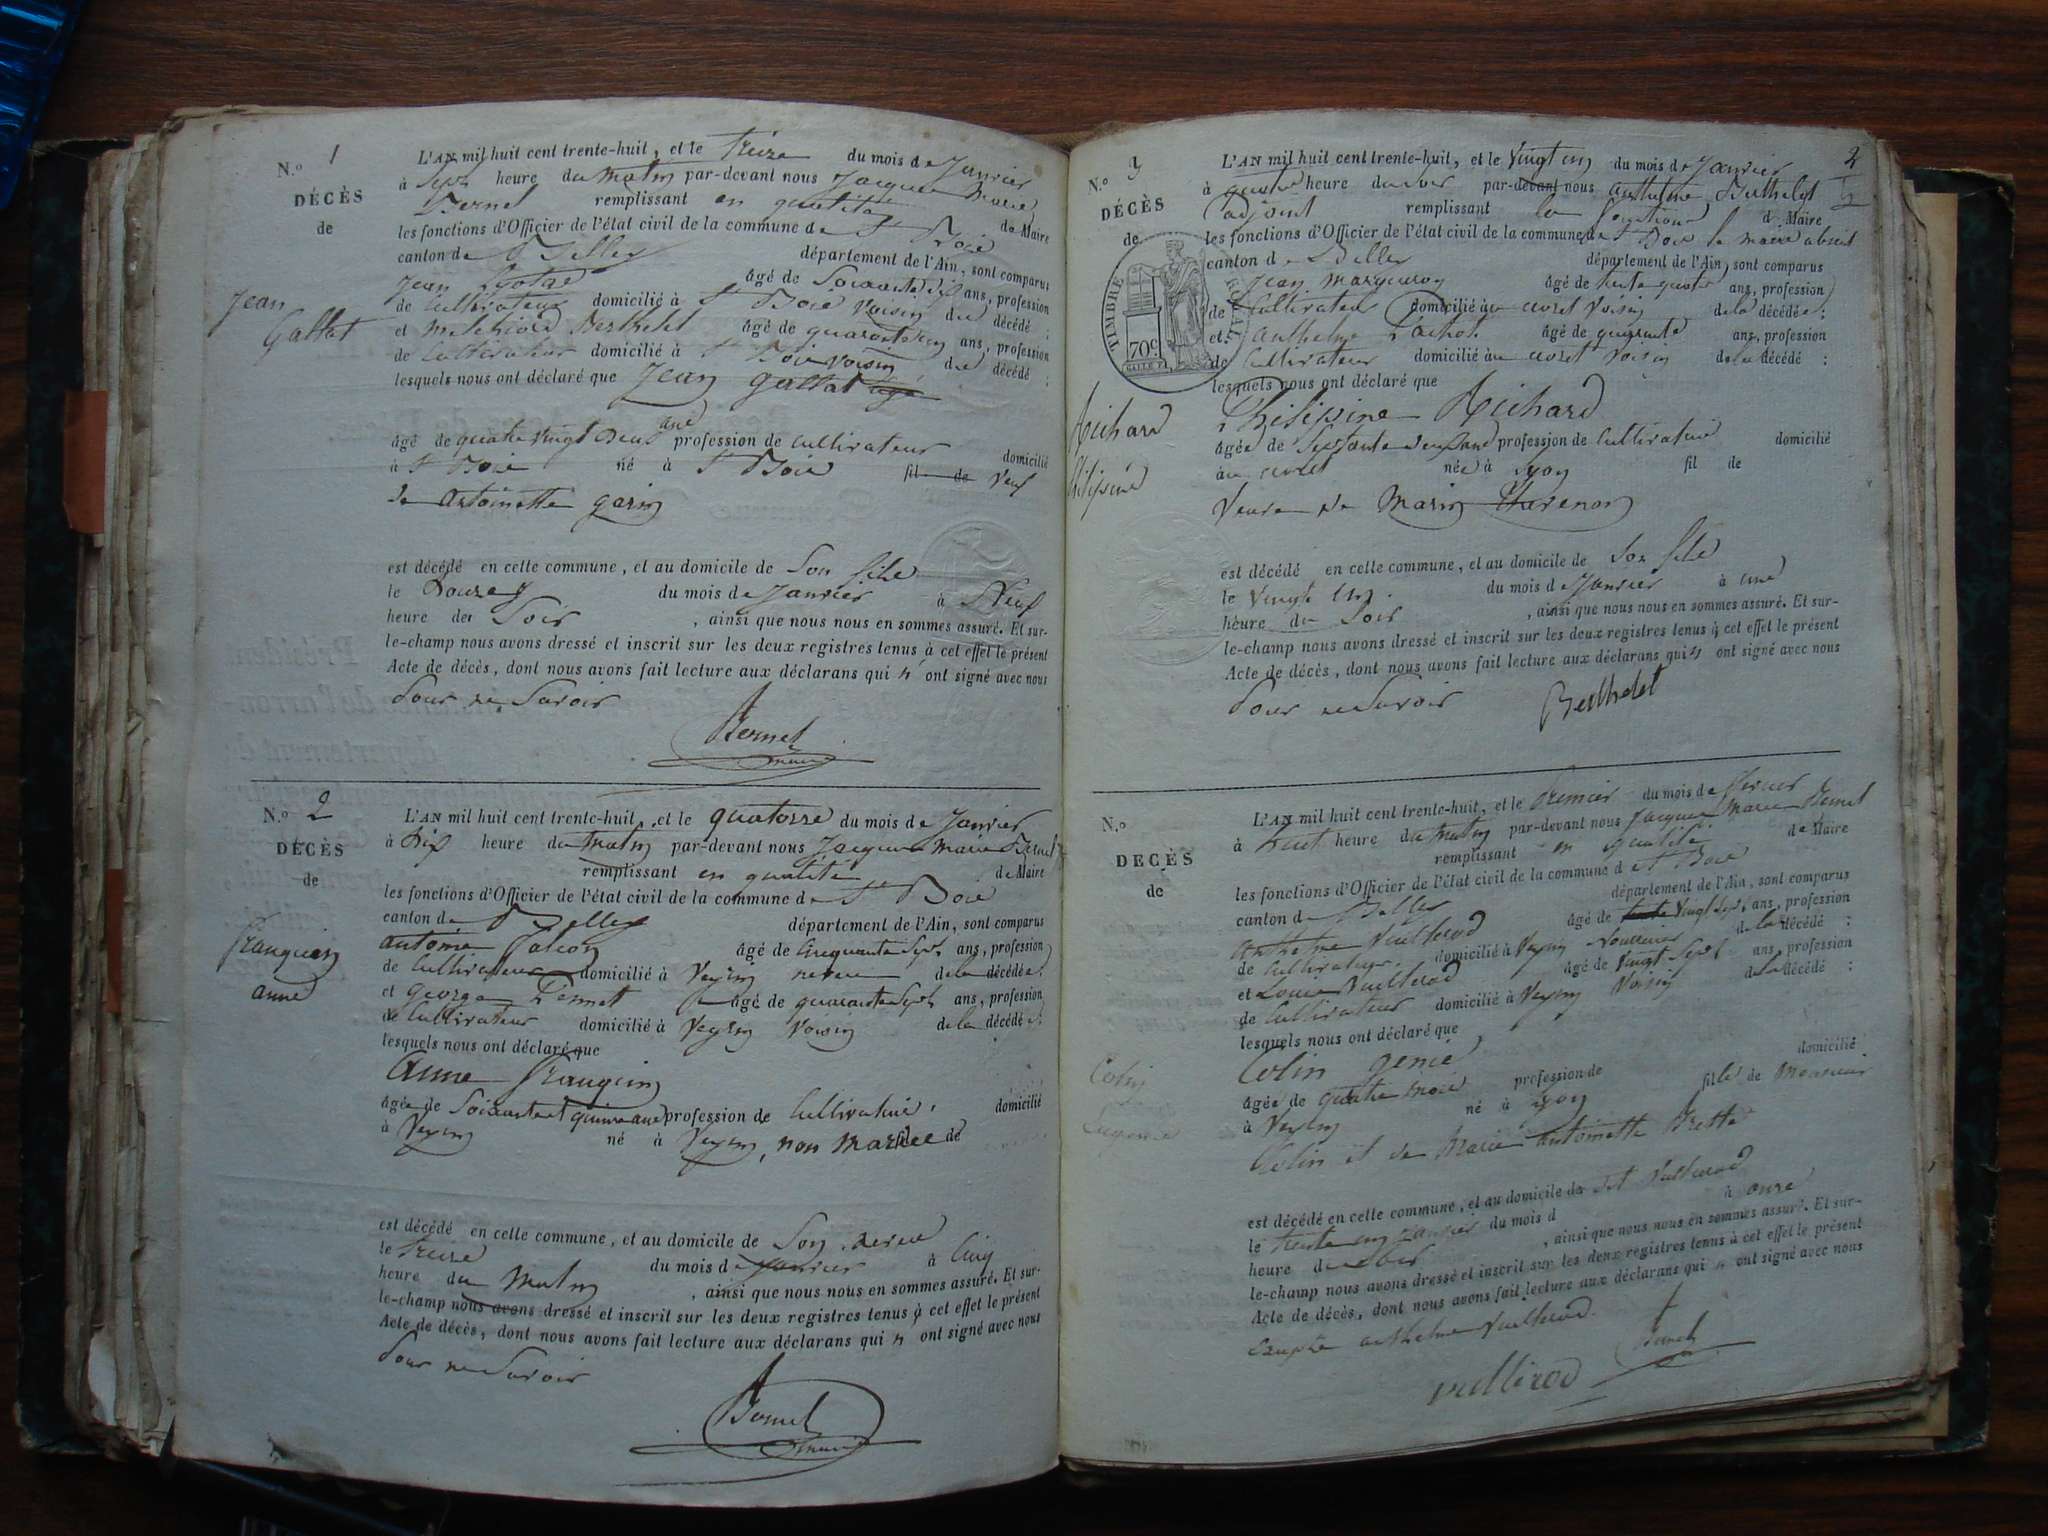 N.o 1
DÉCÈS
de
Jean
Gallat
L'AN mil huit cent trente-huit, et le treize du mois de Janvier
à Sept heure du matin par-devant nous Jacques Marie
Bernet remplissant en qualité de Maire
les fonctions d'Officier de l'état civil de la commune de St Boie
canton de Belley département de l'Ain, sont comparus
Jean âgé de Soixante Dix ans, profession
de Cultivateur domicilié à St Boie Voisin du décédé :
et Melchiord Berthelet âgé de quarante un ans, profession
de Cultivateur domicilié à St Boie voisin du décédé :
lesquels nous ont déclaré que Jean Gallat agé
âgé de quatre vingt Deux ans profession de Cultivateur domicilié
à St Boie né à St Boie fil de Veuf
de Antoinette garin
est décédé en cette commune, et au domicile de Son fils
le Douze du mois de Janvier à Neuf
heure de Soir , ainsi que nous nous en sommes assuré. Et sur-
le-champ nous avons dressé et inscrit sur les deux registres tenus à cet effet le présent
Acte de décès, dont nous avons fait lecture aux déclarans qui n' ont signé avec nous
Pour ne Savoir
Bernet
maire
N.o 2
DÉCÈS
de
françuin
anne
L'AN mil huit cent trente-huit, et le quatorze du mois de Janvier
à Dix heure du matin par-devant nous Jacques Marie Bernet
remplissant en qualité de Maire
les fonctions d'Officier de l'état civil de la commune de St Boie
canton de Belley département de l'Ain, sont comparus
antoine falcon âgé de Cinquante Sept ans, profession
de Cultivateur domicilié à Veyrin neveu de la décédée
et george Pernet âgé de quarante Sept ans, profession
de Cultivateur domicilié à Veyrin Voisin de la décédée
lesquels nous ont déclaré que
Anne françuin
âgée de Soixante et quinze ans profession de Cultivatrice domicilié
à Veyrin né à Veyrin, non Mariée fil de
est décédé en cette commune, et au domicile de Son neveu
le treize du mois de Janvier à Cinq
heure du Matin , ainsi que nous nous en sommes assuré. Et sur-
le-champ nous avons dressé et inscrit sur les deux registres tenus à cet effet le présent
Acte de décès, dont nous avons fait lecture aux déclarans qui n' ont signé avec nous
Pour ne Savoir
Bernet
maire
2
N.o 3
DÉCÈS
de
TIMBRE ROYAL
70c
Richard
philipine
L'AN mil huit cent trente-huit, et le Vingt un du mois de Janvier
à quatre heure du soir par-devant nous anthelme Berthelet
adjoint remplissant la fonction de Maire
les fonctions d'Officier de l'état civil de la commune de St Boie le maire absent
canton de Belley département de l'Ain, sont comparus
Jean marqueron âgé de trente quatre ans, profession
de Cultivateur domicilié au voisin de la décédée :
et anthelme Pachot âgé de quarante ans, profession
de Cultivateur domicilié au voisin de la décédé :
lesquels nous ont déclaré que
Philipine Richard
âgée de Soixante deux ans profession de Cultivatrice domicilié
au née à Lyon fil de
Veuve de Marin
est décédé en cette commune, et au domicile de Son fils
le Vingt Un du mois de Janvier à une
heure du Soir , ainsi que nous nous en sommes assuré. Et sur-
le-champ nous avons dressé et inscrit sur les deux registres tenus à cet effet le présent
Acte de décès, dont nous avons fait lecture aux déclarans qui n' ont signé avec nous
Pour ne Savoir
Berthelet
N.o
DECÈS
de
Colin
Eugenie
L'AN mil huit cent trente-huit, et le Premier du mois de fevrier
à huit heure du matin par-devant nous Jacques Marie Bernet
remplissant en qualité de Maire
les fonctions d'Officier de l'état civil de la commune d St Boie
canton de Belley département de l'Ain, sont comparus
Anthelme Vuillerod âgé de trente Vingt Sept ans, profession
de Cultivateur domicilié à Veyrin Nourricier de la décédé :
et Louis Vuillerod âgé de Vingt Sept ans, profession
de Cultivateur domicilié à Veyrin Voisin de la décédé :
lesquels nous ont déclaré que
Colin genie
âgée de quatre mois profession de domicilié
à Veyrin né à Lyon fille de Monsieur
Colin et de Marie antoinette Brette
est décédé en cette commune, et au domicile de dt Vuillerod
le trente un Janvier du mois d à onze
heure du soir , ainsi que nous nous en sommes assuré. Et sur-
le-champ nous avons dressé et inscrit sur les deux registres tenus à cet effet le présent
Acte de décès, dont nous avons fait lecture aux déclarans qui n' ont signé avec nous
Excepté anthelme Vuillerod
Bernet
vullierod